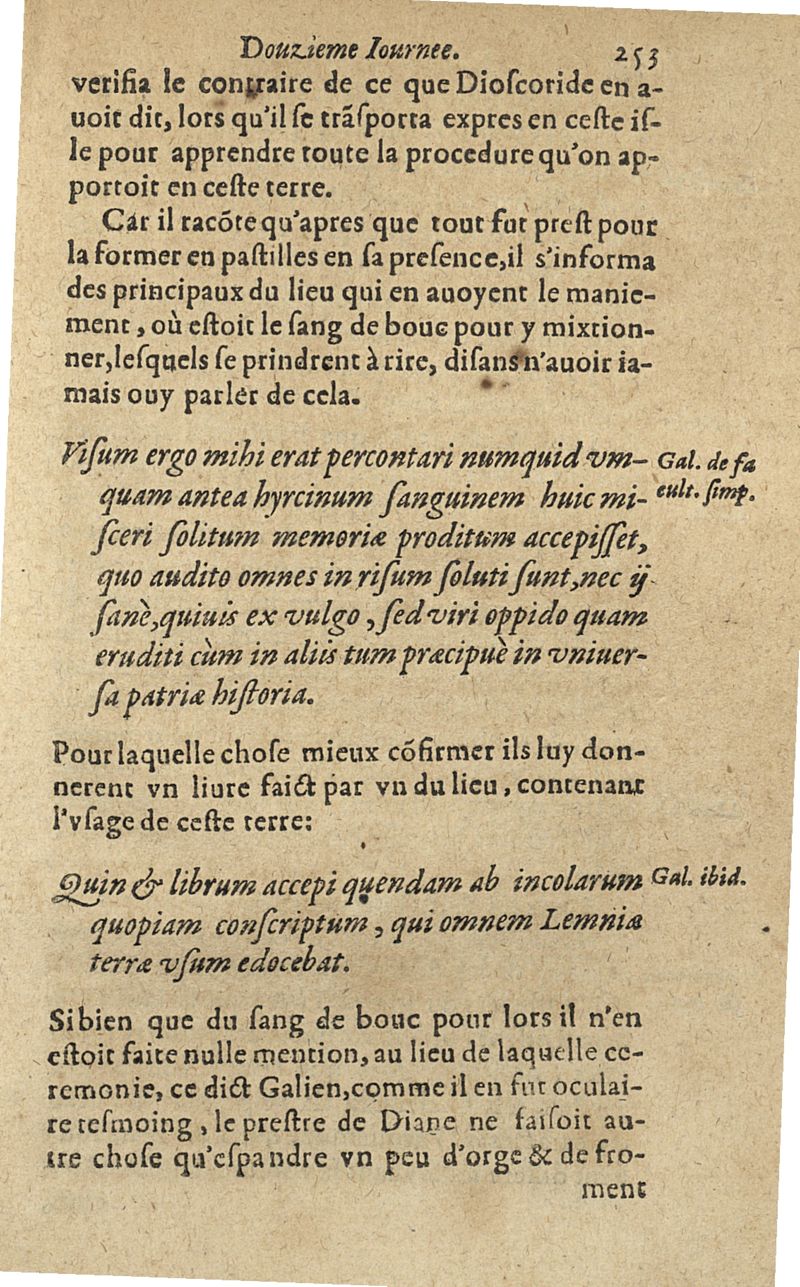 Douzieme Iournee. 253
verifia le contraire de ce que Dioſcoride en a-
uoit dit, lors qu'il ſe trãſporta expres en ceſte iſ-
le pour apprendre toute la procedure qu'on ap-
portoit en ceſte terre.
Car il racõte qu'apres que tout fut preſt pour
la former en paſtilles en ſa preſence, il s'informa
des principaux du lieu qui en auoyent le manie-
ment, où eſtoit le ſang de bouc pour y mixtion-
ner, leſquels ſe prindrent à rire, diſans n'auoir ia-
mais ouy parler de cela.
Viſum ergo mihi erat percontari numquid vm- Gal. de fa
quam antea hyrcinum ſanguinem huic mi- cult. ſimp.
ſceri ſolitum memoriæ proditum accepiſſet,
quo audito omnes in riſum ſoluti ſunt, nec ij
ſanè, quiuis ex vulgo, ſed viri oppido quam
eruditi cùm in aliis tum præcipuè in vniuer-
ſa patriæ hiſtoria.
Pour laquelle choſe mieux cõfirmer ils luy don-
nerent vn liure faict par vn du lieu, contenant
l'vſage de ceſte terre:
Quin & librum accepi quendam ab incolarum Gal. ibid.
quopiam conſcriptum, qui omnem Lemniæ
terræ vſum edocebat.
Si bien que du ſang de bouc pour lors il n'en
eſtoit faite nulle mention, au lieu de laquelle ce-
remonie, ce dict Galien, comme il en fut oculai-
re teſmoing, le preſtre de Diane ne faiſoit au-
tre choſe qu'eſpandre vn peu d'orge & de fro-
ment